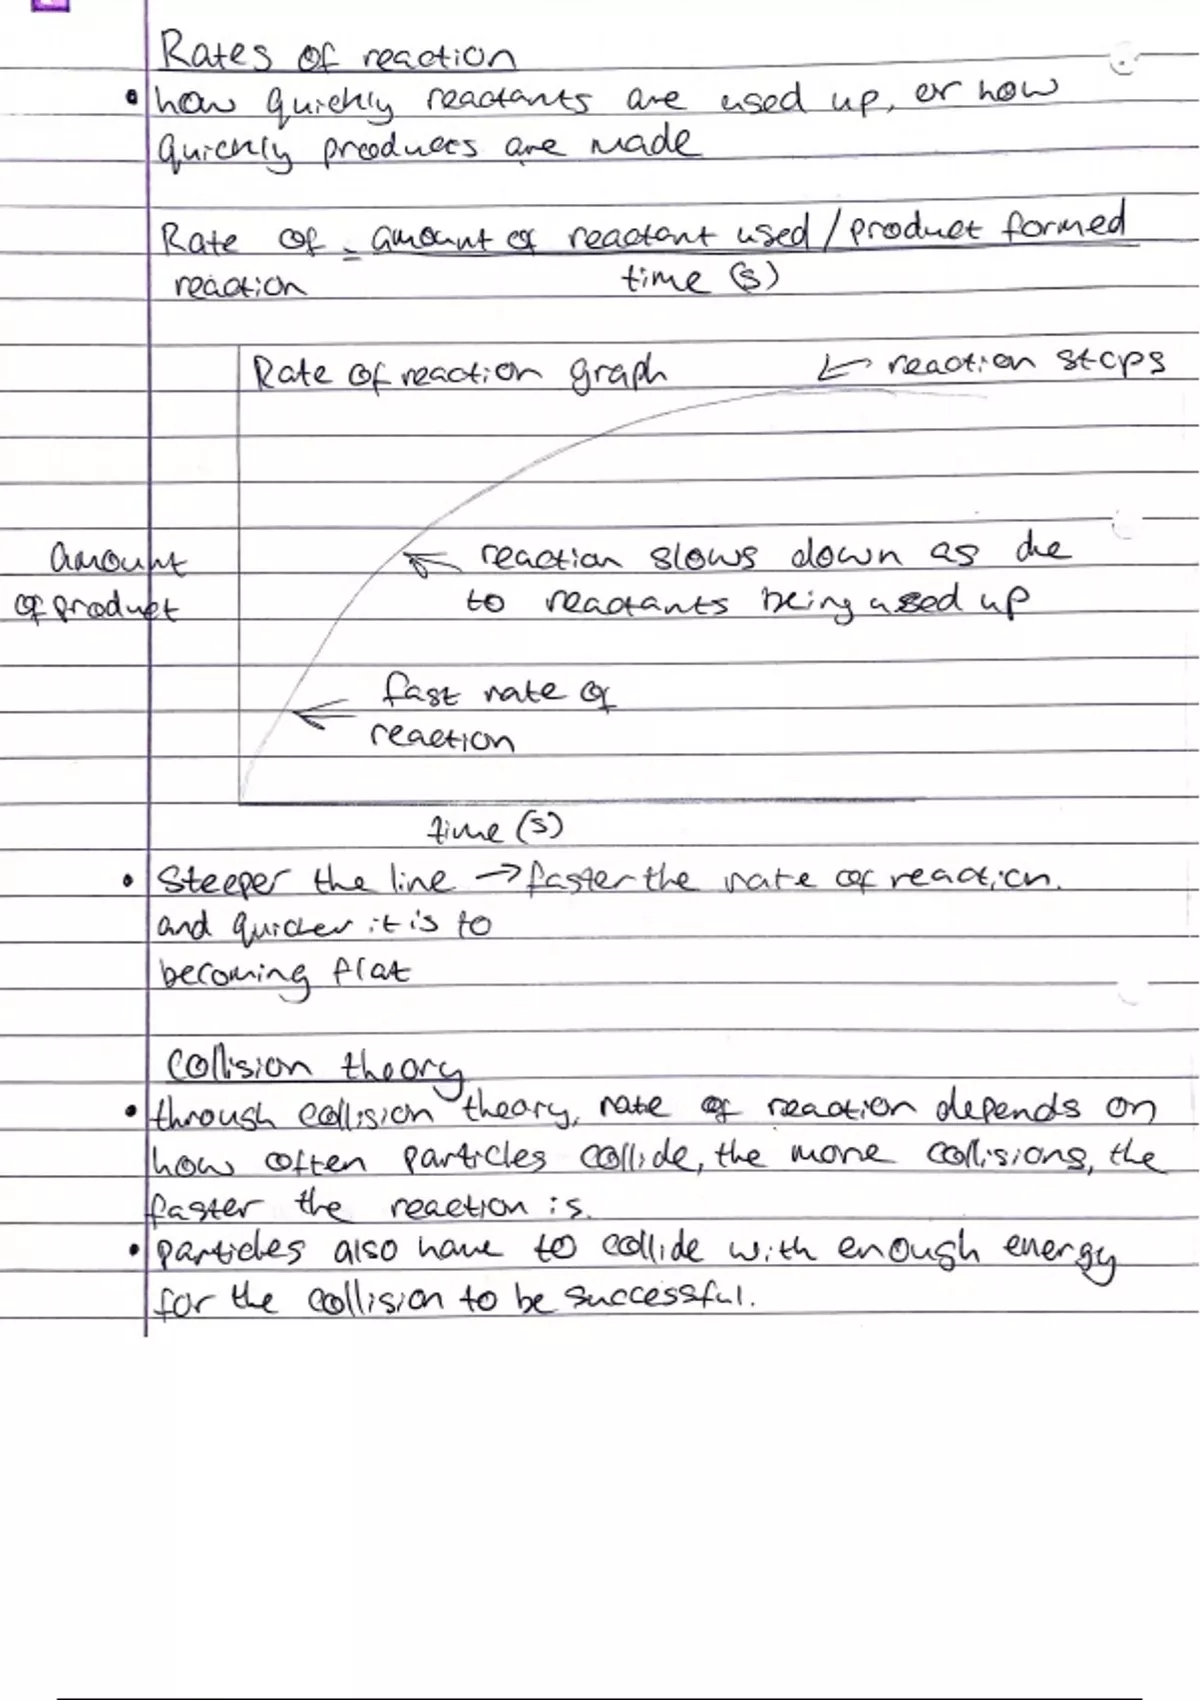 Rates of reaction
• how quickly reactants are used up, or how
quickly products are made
Rate of = amount of reactant used / product formed
reaction time (s)
Rate of reaction graph ← reaction stops
amount
of product
← reaction slows down as due
to reactants being used up
← fast rate of
reaction
time (s)
• Steeper the line → faster the rate of reaction.
and quicker it is to
becoming flat
Collision theory
• through collision theory, rate of reaction depends on
how often particles collide, the more collisions, the
faster the reaction is.
• particles also have to collide with enough energy
for the collision to be successful.